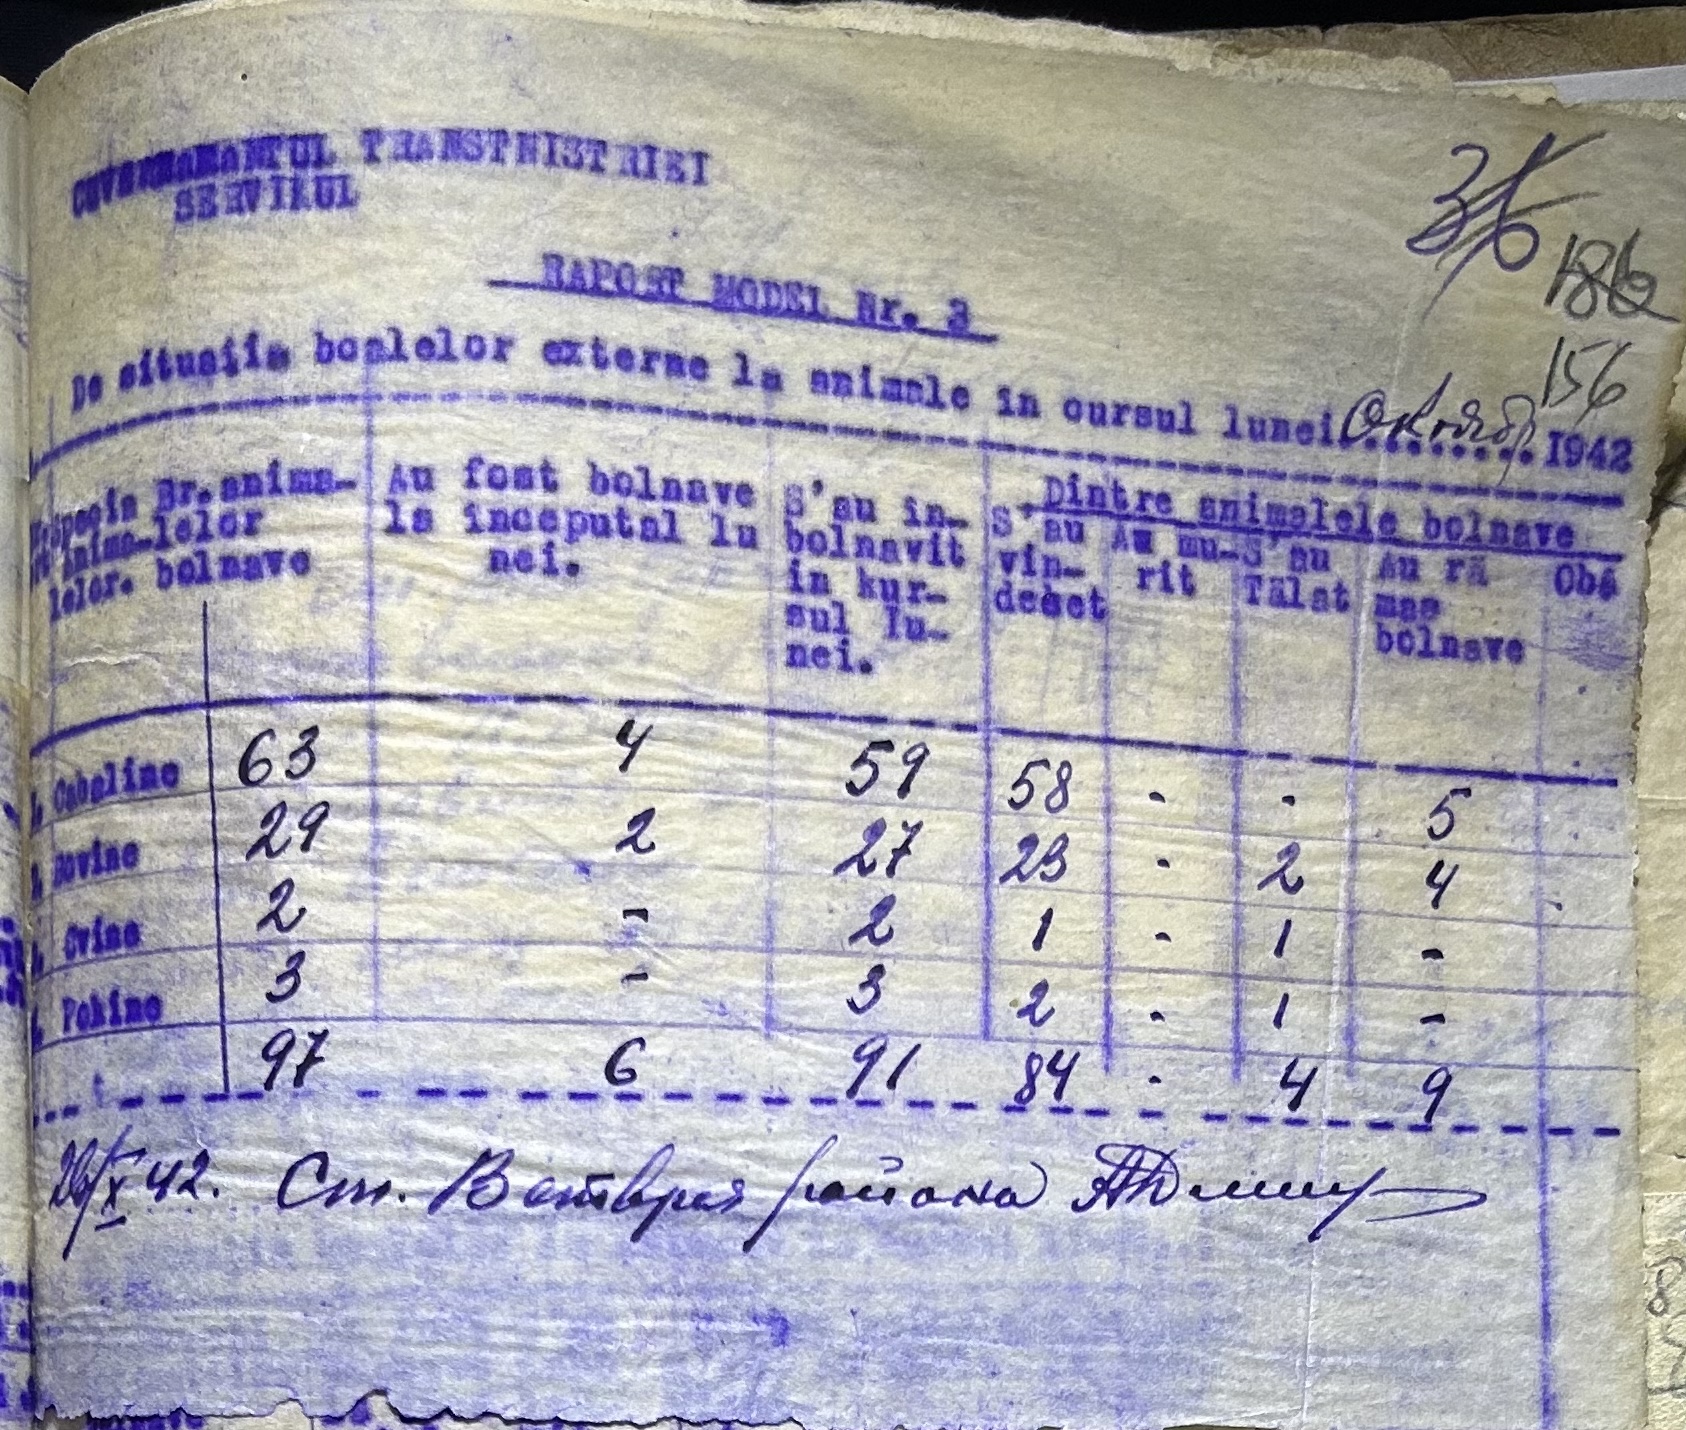 GUVERNAMANTUL TRANSTNISTRIEI
SERVIKUL
36
186
RAPORT MODEL Nr. 3
156
De situatia boalelor externe la animale in cursul lunei Октябр 1942
Specia anima-lelor. Nr. anima-lelor bolnave Au fost bolnave la inceputul lu nei. S'au in-bolnavit in kur-sul lu-nei. Dintre animalele bolnave
S'au vin-decat Au mu-rit S'au Tălat Au ră mas bolnave Obs
Cabaline 63 4 59 58 - - 5
Bovine 29 2 27 23 - 2 4
Ovine 2 - 2 1 - 1 -
Pohine 3 - 3 2 - 1 -
97 6 91 84 - 4 9
X 42. Ст. Ветврач района